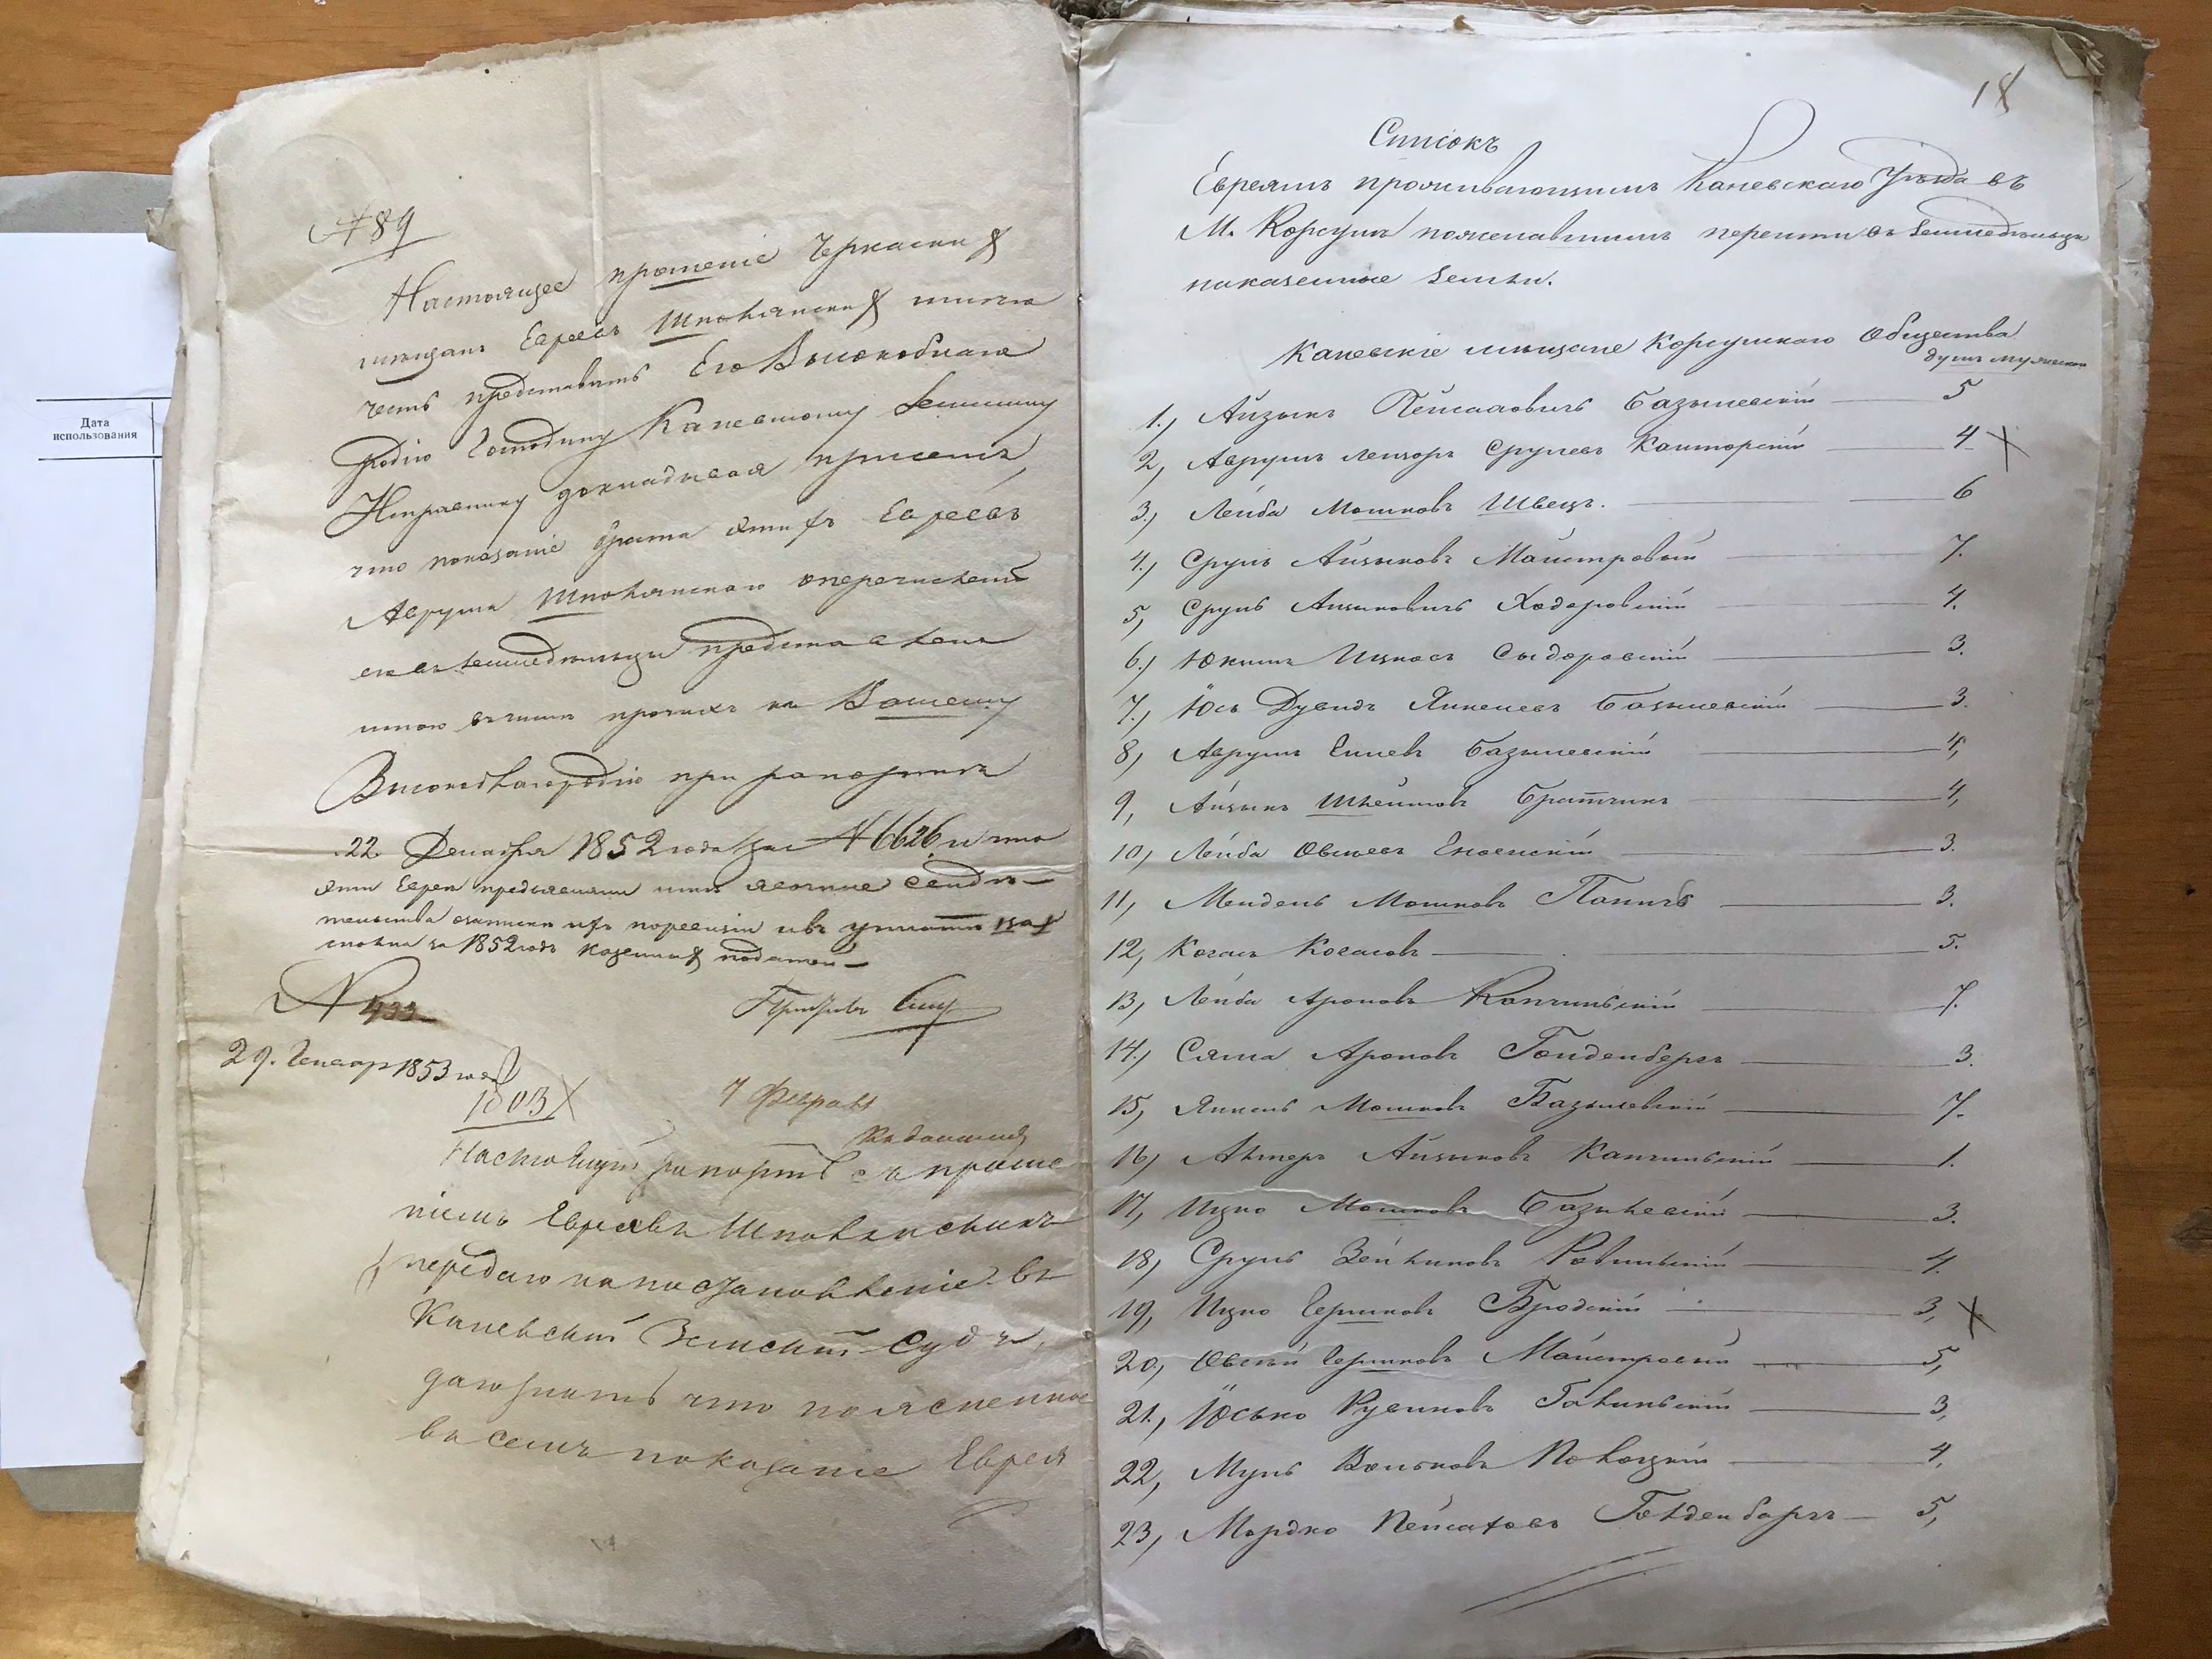 Дата
использования
№ 89
Настоящее прошеніе Черкаских
мещанъ Евреевъ Шполянских имею
честь представить Его Высокоблаго
родію Господину Каневскому Земскому
Исправнику докладывая присемъ,
что показаніе брата этих Евреевъ
Аврума Шполянскаго оперечислении
ихъ въ земледельцы представлено
мною въ числе прочихъ къ Вашему
Высокоблагородію при рапорте
22 Декабря 1852 года за № 6626 и что
эти Евреи предъявили мне явочные свиде-
тельства о записки их по ревизіи и въ уплате
за 1852 годъ казенных податей
№ 433
29. Генвар 1853 года
1803
7 Февраля
Настоящій рапортъ съ проше
ніемъ Евреевъ Шполянскихъ
передаю на постановленіе въ
Каневскій Земскій Судъ,
что поясненное
въ семъ показаніе Еврея
18
Списокъ
Евреямъ проживающимъ Каневскаго Уѣзда въ
М. Корсунѣ пожелавшимъ перейти въ Земледѣльцы
на казенные земли.
Каневскіе мѣщане Корсунскаго Общества
душъ мужескихъ
1., Айзыкъ Пейсаховичъ Базылевскій — 5
2, Аврумъ Лейзоръ Срулевъ Канторскій — 4
3., Лейба Мошковъ Швецъ. — 6
4., Сруль Айзыковъ Майстровый — 7.
5, Сруль Айзыковичъ Ходоровскій — 4.
6., Юкимъ Ицковъ Сыдоровскій — 3.
7., Юсь Дувидъ Янкелевъ Базылевскій — 3.
8, Аврумъ Базылевскій — 4,
9, Айзыкъ Шлёимовъ Братчикъ — 4,
10, Лейба Овсѣевъ — 3.
11, Мендель Мошковъ Паничъ — 3.
12, Коганъ Когановъ — 5.
13, Лейба Ароновъ Капчинскій — 7.
14., Сяма Ароновъ Голденбергъ — 3.
15, Янкель Мошковъ Базылевскій — 7.
16, Алтеръ Айзыковъ Капчинскій — 1.
17, Ицко Мошковъ Базылевскій — 3.
18, Сруль Зейликовъ Ровинскій — 4.
19, Ицко Гершковъ Бродскій — 3,
20, Овсѣй Гершковъ Майстровый — 5,
21., Юсько Рувиновъ Галинскій — 3,
22, Муль Волковъ Полоцкій — 4,
23, Мордко Пейсаховъ Голденбаргъ — 5,